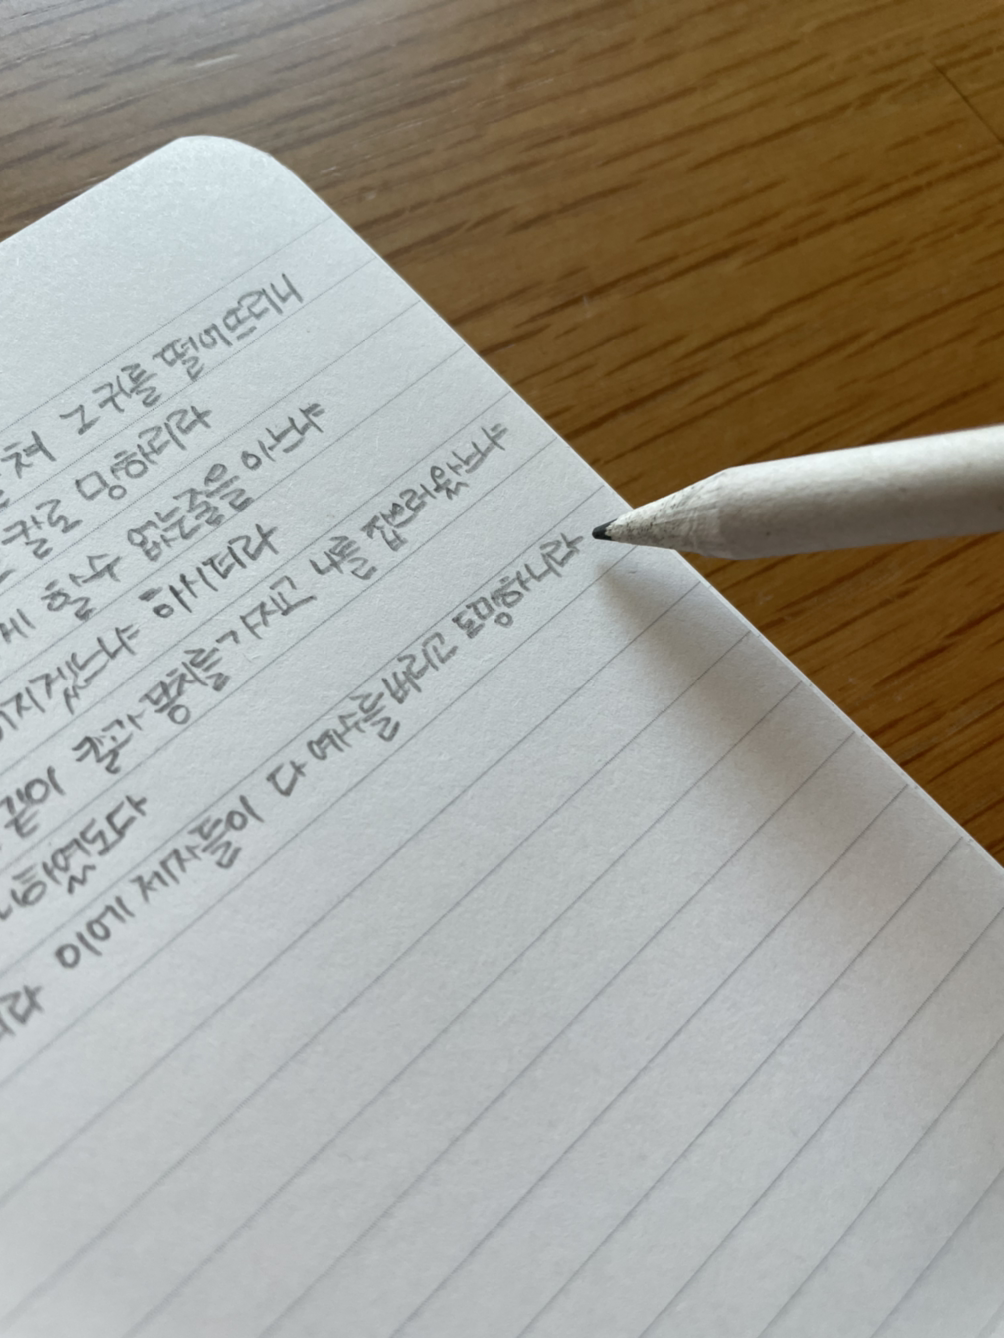 쳐 그 귀를 떨어뜨리니
칼로 망하리라
게 할 수 없는줄을 아느냐
이지겠느냐 하시더라
같이 칼과 몽치를 가지고 나를 잡으러 왔느냐
하였도다
이에 제자들이 다 예수를 버리고 도망하니라